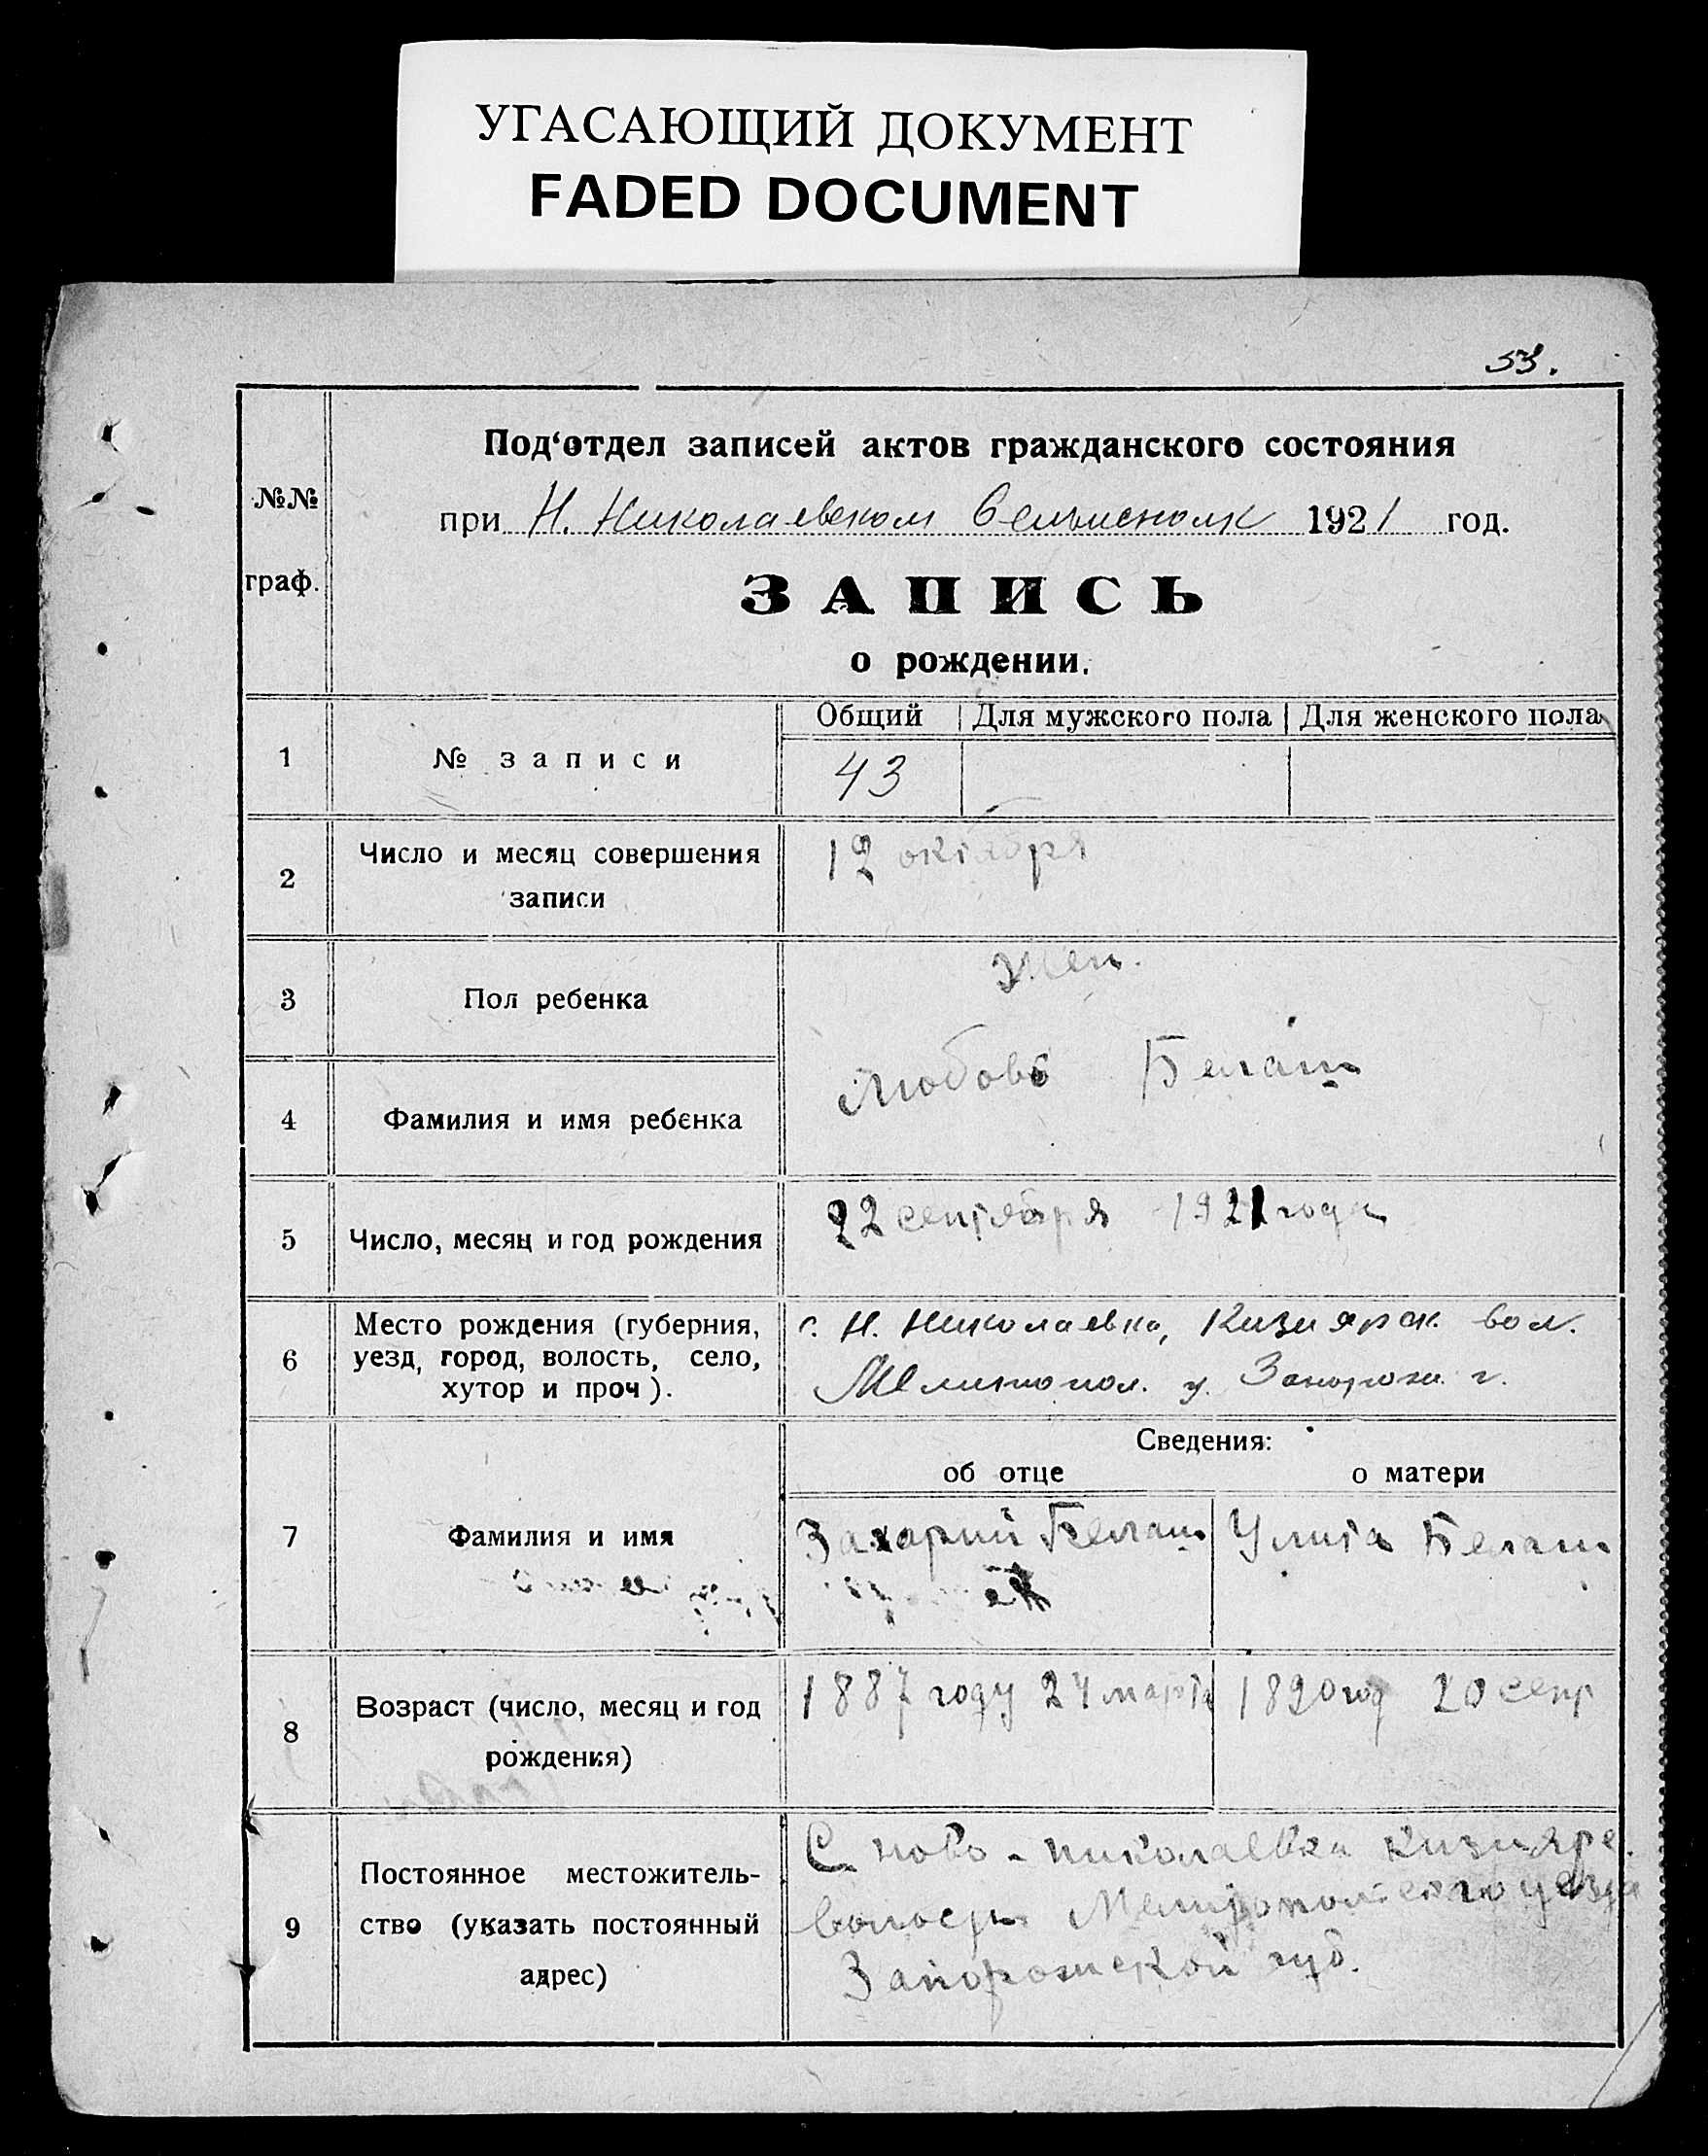 УГАСАЮЩИЙ ДОКУМЕНТ
FADED DOCUMENT
53.
№№
граф.
Под‘отдел записей актов гражданского состояния
при Н. Николаевском Сельисполк 1921 год.
ЗАПИСЬ
о рождении.
1
№ записи
Общий
Для мужского пола
Для женского пола
43
2
Число и месяц совершения
записи
12 октября
3
Пол ребенка
жен.
4
Фамилия и имя ребенка
Любовь Белаш
5
Число, месяц и год рождения
22 сентября 1921 года
6
Место рождения (губерния,
уезд, город, волость, село,
хутор и проч).
с. Н. Николаевка, Кизиярск. вол.
Мелитопол. у. Запорож. г.
Сведения:
об отце
о матери
7
Фамилия и имя
Захарий Белаш
Улита Белаш
8
Возраст (число, месяц и год
рождения)
1887 году 24 марта
1890 год 20 сент
9
Постоянное местожитель-
ство (указать постоянный
адрес)
С ново-николаевка кизиярс.
волости Мелитопольского уезда
Запорожской губ.